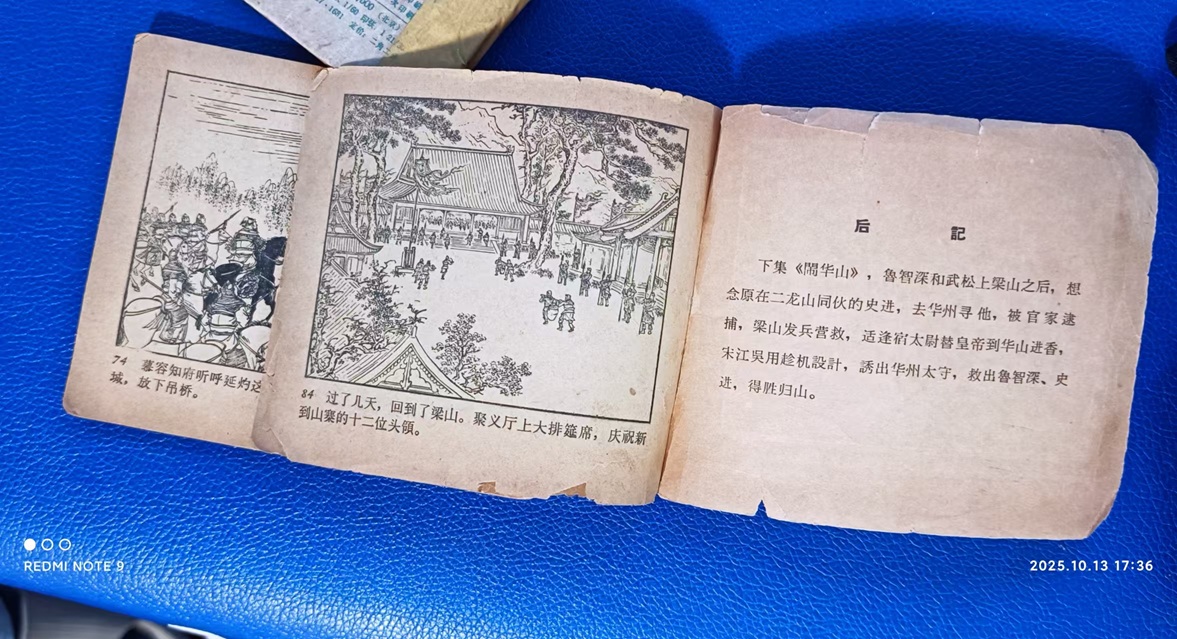 1/60
定价：二角二
74 慕容知府听呼延灼这
城，放下吊桥。
84 过了几天，回到了梁山。聚义厅上大排筵席，庆祝新
到山寨的十二位头領。
后 記
下集《鬧华山》，魯智深和武松上梁山之后，想
念原在二龙山同伙的史进，去华州寻他，被官家逮
捕，梁山发兵营救，适逢宿太尉替皇帝到华山进香，
宋江吳用趁机設計，誘出华州太守，救出魯智深、史
进，得胜归山。
REDMI NOTE 9
2025.10.13 17:36